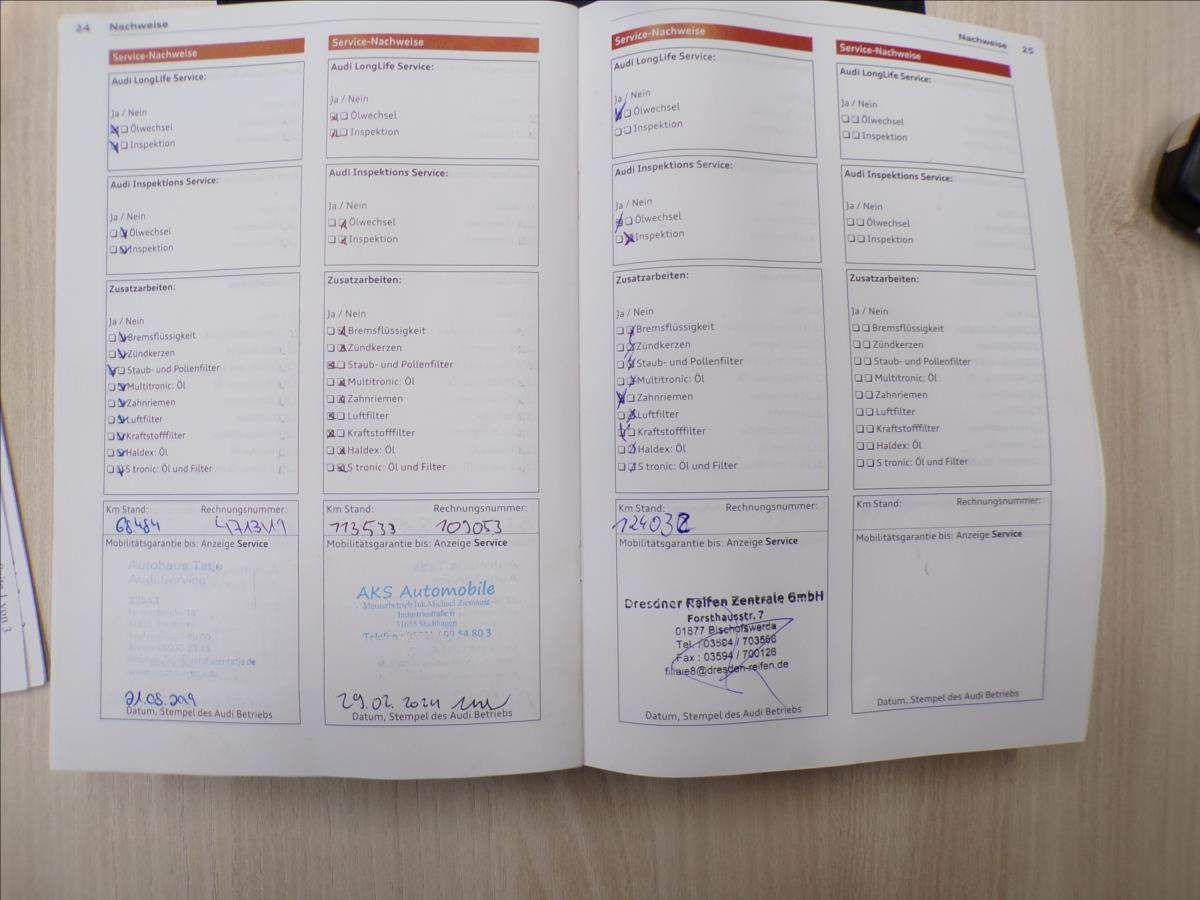 24 Nachweise
Service-Nachweise
Audi LongLife Service:
Ja / Nein
Ölwechsel
Inspektion
Audi Inspektions Service:
Ja / Nein
Ölwechsel
Inspektion
Zusatzarbeiten:
Ja / Nein
Bremsflüssigkeit
Zündkerzen
Staub- und Pollenfilter
Multitronic: Öl
Zahnriemen
Luftfilter
Kraftstofffilter
Haldex: Öl
S tronic: Öl und Filter
Km Stand: Rechnungsnummer:
68484
Mobilitätsgarantie bis: Anzeige Service
Autohaus Tatje
Audi Service
Datum, Stempel des Audi Betriebs
Service-Nachweise
Audi LongLife Service:
Ja / Nein
Ölwechsel
Inspektion
Audi Inspektions Service:
Ja / Nein
Ölwechsel
Inspektion
Zusatzarbeiten:
Ja / Nein
Bremsflüssigkeit
Zündkerzen
Staub- und Pollenfilter
Multitronic: Öl
Zahnriemen
Luftfilter
Kraftstofffilter
Haldex: Öl
S tronic: Öl und Filter
Km Stand: Rechnungsnummer:
113533 109053
Mobilitätsgarantie bis: Anzeige Service
AKS Automobile
Meisterbetrieb Ink.Michael
Industriestraße 6
31655 Stadthagen
Datum, Stempel des Audi Betriebs
Nachweise 25
Service-Nachweise
Audi LongLife Service:
Ja / Nein
Ölwechsel
Inspektion
Audi Inspektions Service:
Ja / Nein
Ölwechsel
Inspektion
Zusatzarbeiten:
Ja / Nein
Bremsflüssigkeit
Zündkerzen
Staub- und Pollenfilter
Multitronic: Öl
Zahnriemen
Luftfilter
Kraftstofffilter
Haldex: Öl
S tronic: Öl und Filter
Km Stand: Rechnungsnummer:
124032
Mobilitätsgarantie bis: Anzeige Service
Dresdner Reifen Zentrale GmbH
Forsthausstr. 7
01877 Bischofswerda
Tel.: 03594 / 703566
Fax : 03594 / 700126
filiale8@dresden-reifen.de
Datum, Stempel des Audi Betriebs
Service-Nachweise
Audi LongLife Service:
Ja / Nein
Ölwechsel
Inspektion
Audi Inspektions Service:
Ja / Nein
Ölwechsel
Inspektion
Zusatzarbeiten:
Ja / Nein
Bremsflüssigkeit
Zündkerzen
Staub- und Pollenfilter
Multitronic: Öl
Zahnriemen
Luftfilter
Kraftstofffilter
Haldex: Öl
S tronic: Öl und Filter
Km Stand: Rechnungsnummer:
Mobilitätsgarantie bis: Anzeige Service
Datum, Stempel des Audi Betriebs